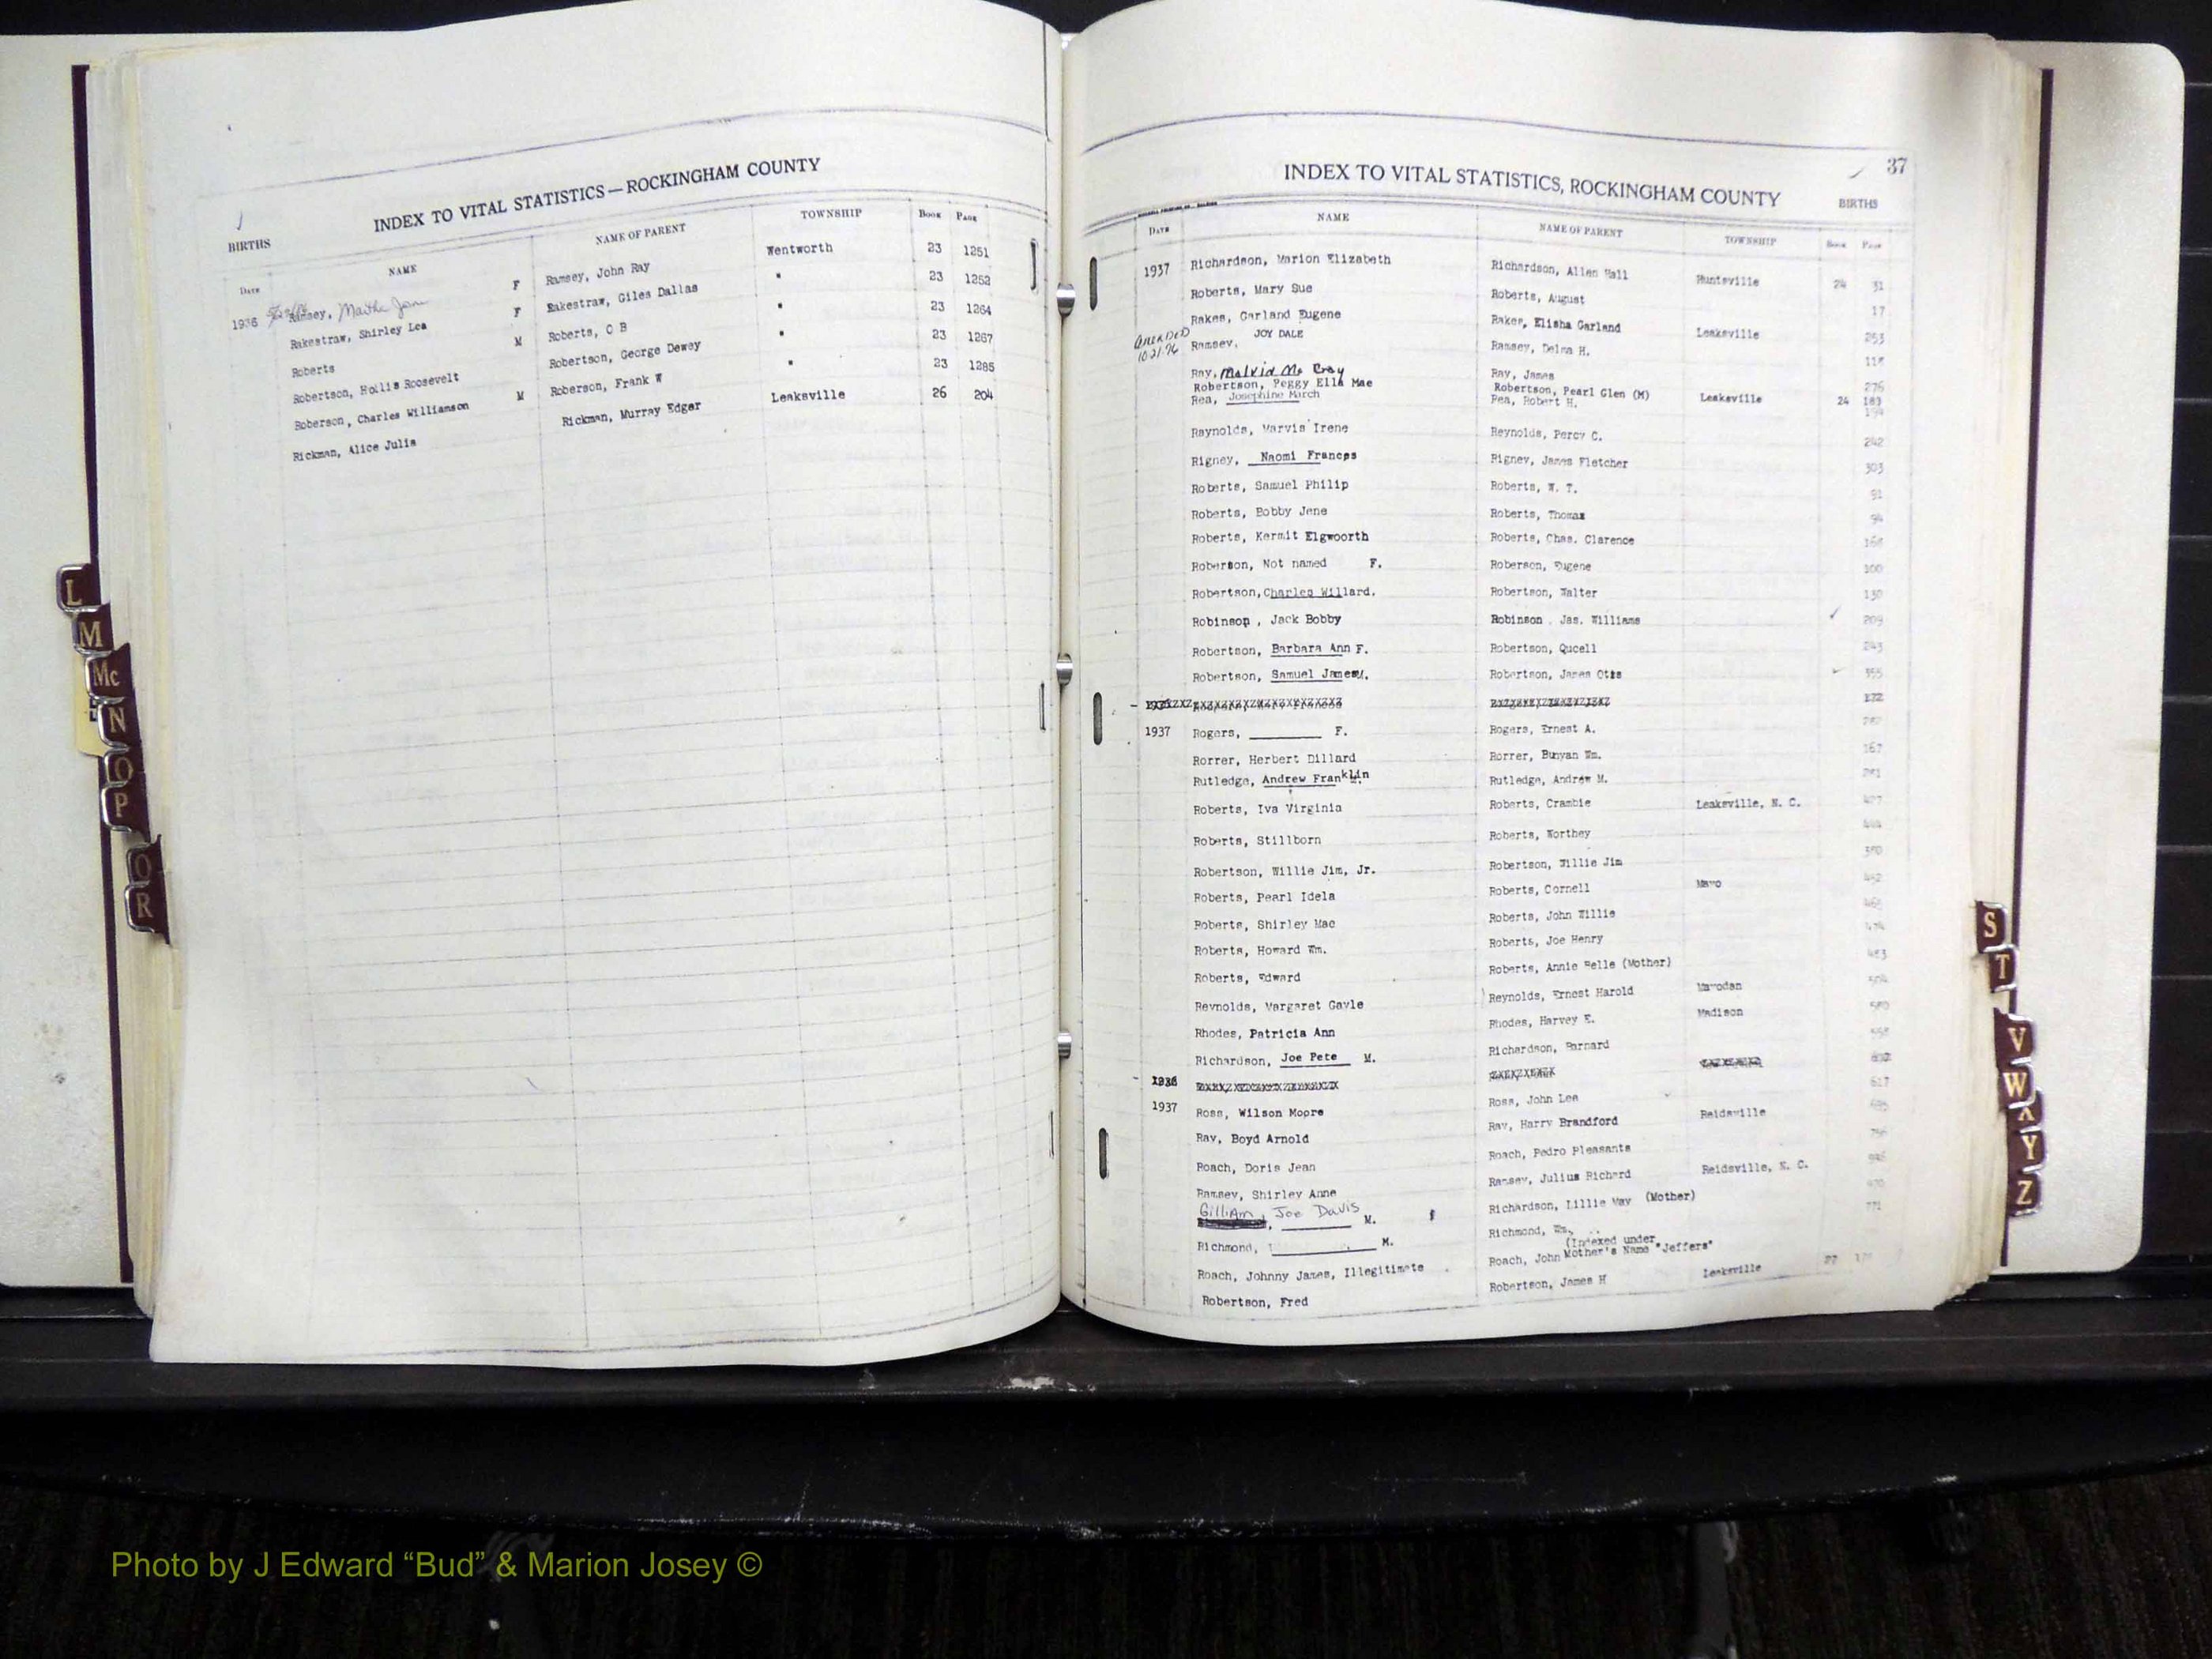 INDEX TO VITAL STATISTICS — ROCKINGHAM COUNTY
BIRTHS
DATE NAME NAME OF PARENT TOWNSHIP BOOK PAGE
1936 Ramsey, Martha Jane F Ramsey, John Ray Wentworth 23 1251
Rakestraw, Shirley Lea F Rakestraw, Giles Dallas " 23 1252
Roberts M Roberts, O B " 23 1264
Robertson, Hollis Roosevelt Robertson, George Dewey " 23 1267
Roberson, Charles Williamson M Roberson, Frank W " 23 1285
Rickman, Alice Julia Rickman, Murray Edger Leaksville 26 204
L
M
Mc
N
O
P
Q
R
37
INDEX TO VITAL STATISTICS, ROCKINGHAM COUNTY
BIRTHS
DATE NAME NAME OF PARENT TOWNSHIP BOOK PAGE
1937 Richardson, Marion Elizabeth Richardson, Allen Hall Huntsville 24 31
Roberts, Mary Sue Roberts, August 17
Rakes, Garland Eugene Rakes, Elisha Garland Leaksville 253
Amended 10-21-76 Ramsey, JOY DALE Ramsey, Delma H. 118
Ray, Malvid Mc Cray Ray, James 276
Robertson, Peggy Ella Mae Robertson, Pearl Glen (M) Leaksville 24 183
Rea, Josephine March Rea, Robert H. 194
Reynolds, Marvis Irene Reynolds, Percy C. 242
Rigney, Naomi Frances Rigney, James Fletcher 303
Roberts, Samuel Philip Roberts, W. T. 91
Roberts, Bobby Jene Roberts, Thomas 94
Roberts, Kermit Elgwoorth Roberts, Chas. Clarence 168
Roberson, Not named F. Roberson, Eugene 100
Robertson, Charles Willard. Robertson, Walter 130
Robinson, Jack Bobby Robinson, Jas. Williams 209
Robertson, Barbara Ann F. Robertson, Qucell 243
Robertson, Samuel James M. Robertson, James Otis 355
1937 Rogers, F. Rogers, Ernest A.
Rorrer, Herbert Dillard Rorrer, Bunyan Wm. 167
Rutledge, Andrew Franklin Rutledge, Andrew M.
Roberts, Iva Virginia Roberts, Crambie Leaksville, N. C.
Roberts, Stillborn Roberts, Worthey
Robertson, Willie Jim, Jr. Robertson, Willie Jim
Roberts, Pearl Idela Roberts, Cornell Mayo
Roberts, Shirley Mae Roberts, John Willie
Roberts, Howard Wm. Roberts, Joe Henry
Roberts, Edward Roberts, Annie Belle (Mother)
Reynolds, Margaret Gayle Reynolds, Ernest Harold Mayodan
Rhodes, Patricia Ann Rhodes, Harvey E. Madison
Richardson, Joe Pete M. Richardson, Barnard
1936
1937 Ross, Wilson Moore Ross, John Lee 617
Ray, Boyd Arnold Ray, Harry Brandford Reidsville
Roach, Doris Jean Roach, Pedro Pleasants
Ramsey, Shirley Anne Ramsey, Julius Richard Reidsville, N. C.
Gilliam, Joe Davis M. Richardson, Lillie May (Mother)
Richmond, M. Richmond, Wm. 771
Roach, Johnny James, Illegitimate Roach, John (Indexed under Mother's Name "Jeffers"
Robertson, Fred Robertson, James H Leaksville 27
S
T
V
W
Y
Z
Photo by J Edward “Bud” & Marion Josey ©